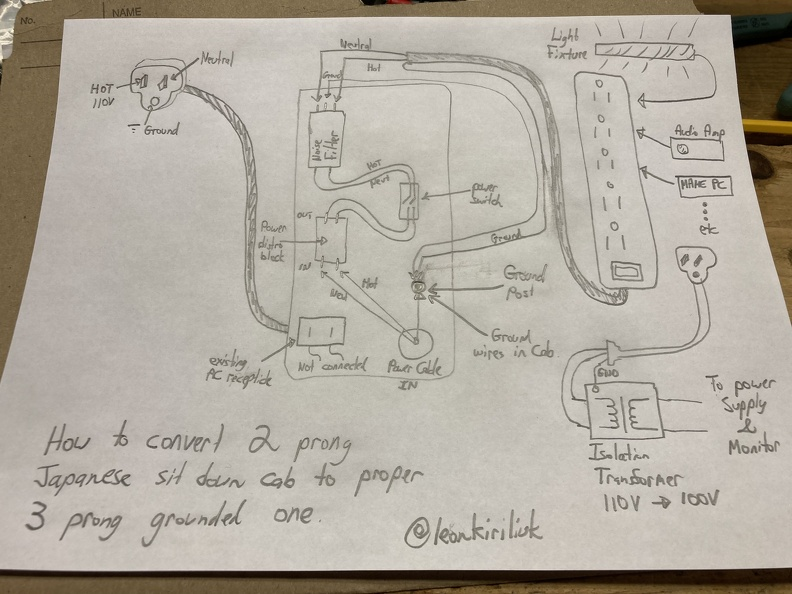 No.
NAME
Neutral
HOT
110V
Ground
Neutral
Ground
Hot
Noise
Filter
HOT
Neut
power
switch
OUT
Power
distro
block
IN
Neut
Hot
Ground
Ground
Post
Ground
wires in Cab
existing
PC receptide
Not connected
Power Cable
IN
Light
Fixture
Audio Amp
MAME PC
etc
GND
Isolation
Transformer
110V → 100V
To power
Supply
&
Monitor
How to convert 2 prong
Japanese sit down cab to proper
3 prong grounded one.
@leonkiriliuk